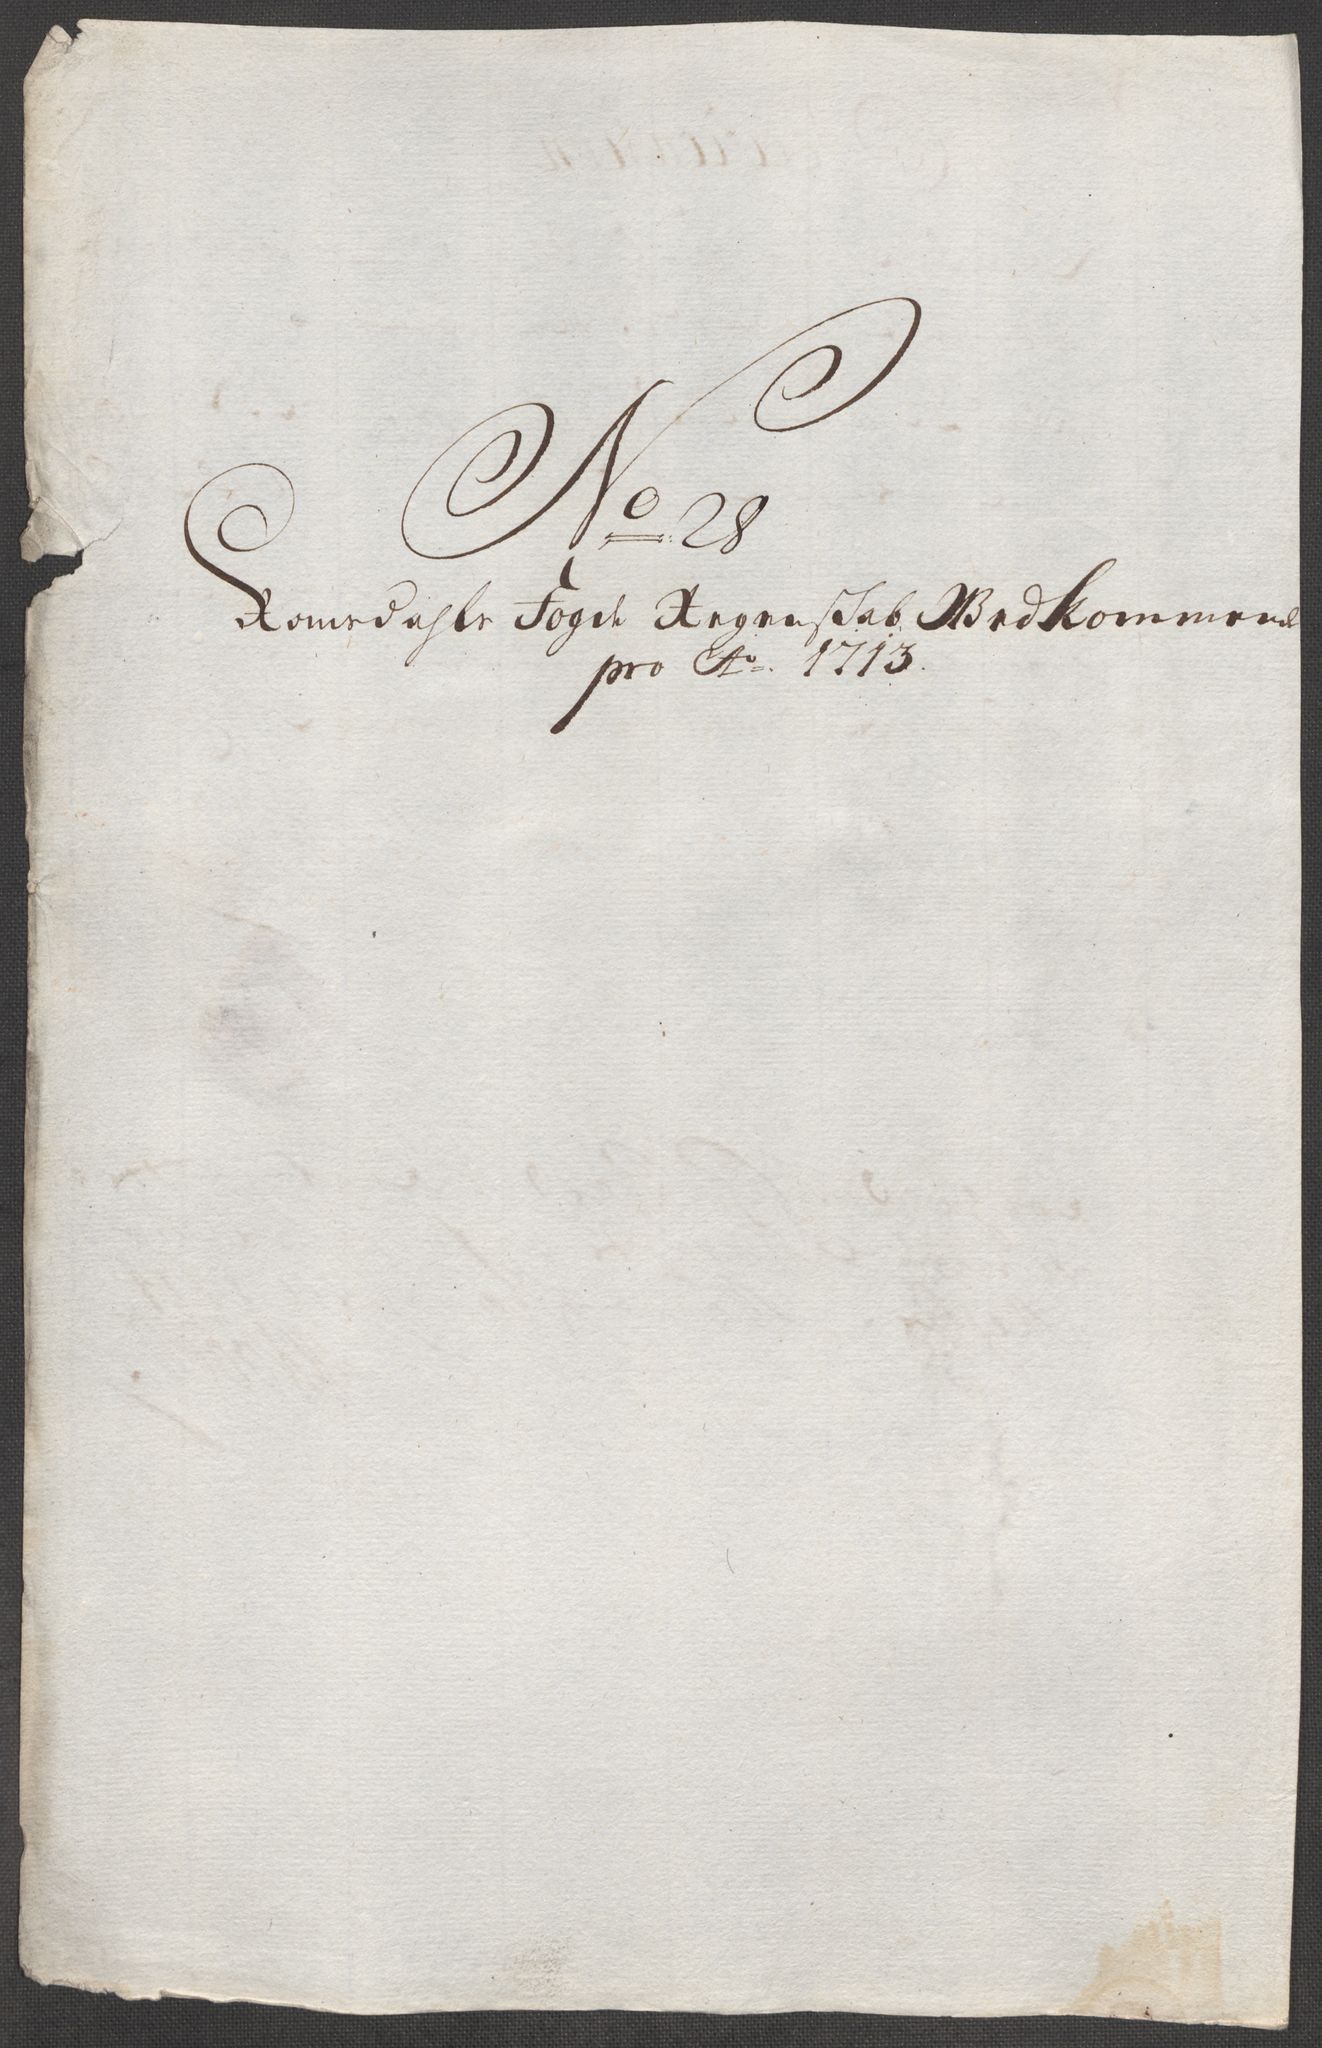 No 28
Romsdahls Fogde Regenskab Vedkommende
pro Ao. 1713.